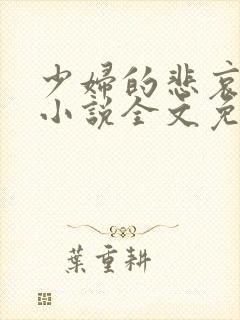 少婦的悲哀
小說全文免
葉重耕